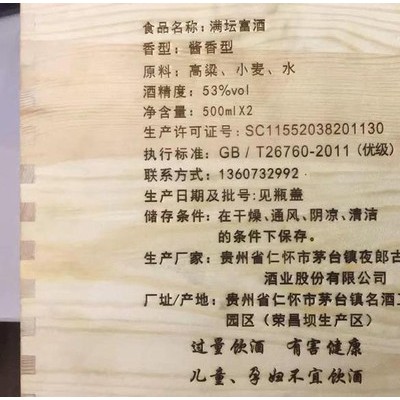 食品名称：满坛富酒
香型：酱香型
原料：高粱、小麦、水
酒精度：53%vol
净含量：500mlX2
生产许可证号：SC11552038201130
执行标准：GB / T26760-2011 (优级)
联系方式：1360732992
生产日期及批号：见瓶盖
储存条件：在干燥、通风、阴凉、清洁
的条件下保存。
生产厂家：贵州省仁怀市茅台镇夜郎古
酒业股份有限公司
厂址/产地：贵州省仁怀市茅台镇名酒工
园区（荣昌坝生产区）
过量饮酒 有害健康
儿童、孕妇不宜饮酒